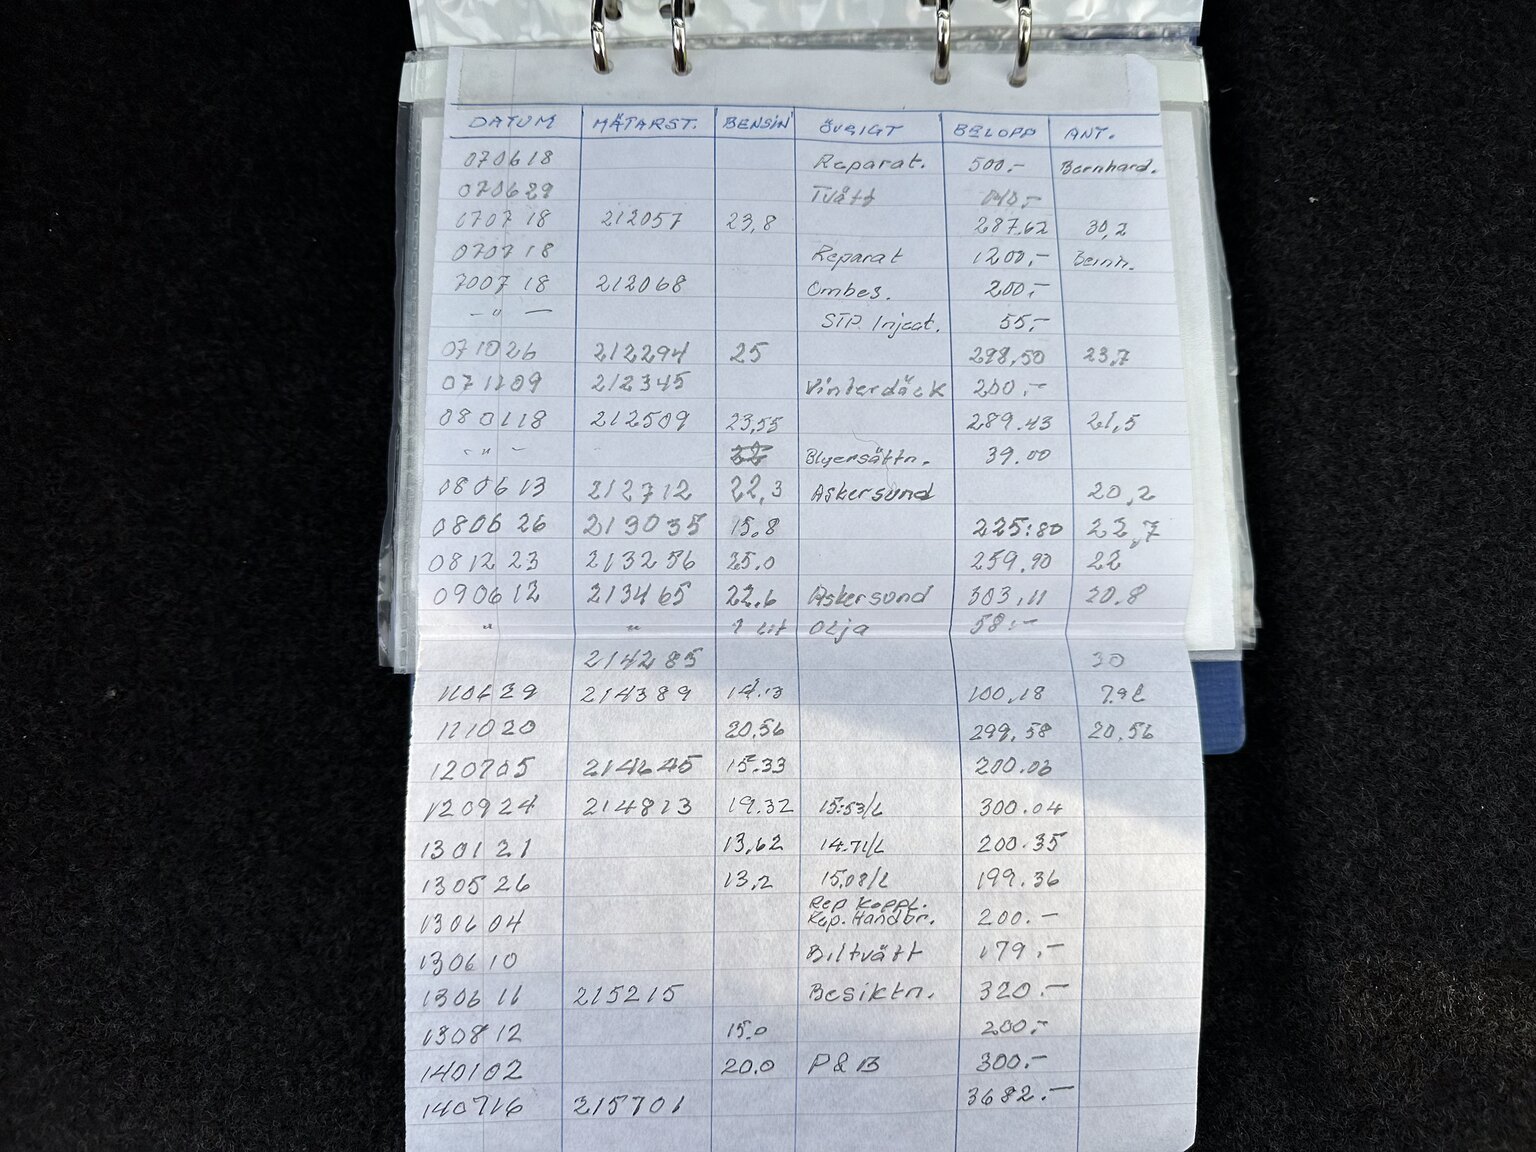 DATUM MÄTARST. BENSIN ÖVRIGT BELOPP ANT.
070618 Reparat. 500.- Bernhard.
070629 Tvätt
070718 212057 23,8 287.62 30,2
070718 Reparat 1200,- Bernh.
700718 212068 Ombes. 200,-
-"- STP. Inject. 55,-
071026 212294 25 298,50 23,7
071109 212345 Vinterdäck 200,-
080118 212509 23,55 289.43 21,5
-"- Blyersättn. 39.00
080613 212712 22,3 Askersund 20,2
080626 213035 15,8 225:80 22,7
081223 213256 25.0 259.90 22
090612 213465 22,6 Askersund 303,11 20.8
" " 1 lit Olja 58:-
214285 30
110629 214389 14.13 100,18
111020 20.56 299,58 20,56
120705 214645 15.33 200.03
120924 214813 19.32 15:53/L 300.04
130121 13,62 14.71/L 200.35
130526 13,2 15,08/L 199.36
Rep Koppl.
130604 Rep. Handbr. 200.-
130610 Biltvätt 179.-
130611 215215 Besiktn. 320.-
130812 15.0 200.-
140102 20.0 P&B 300.-
140716 215701 3682.-